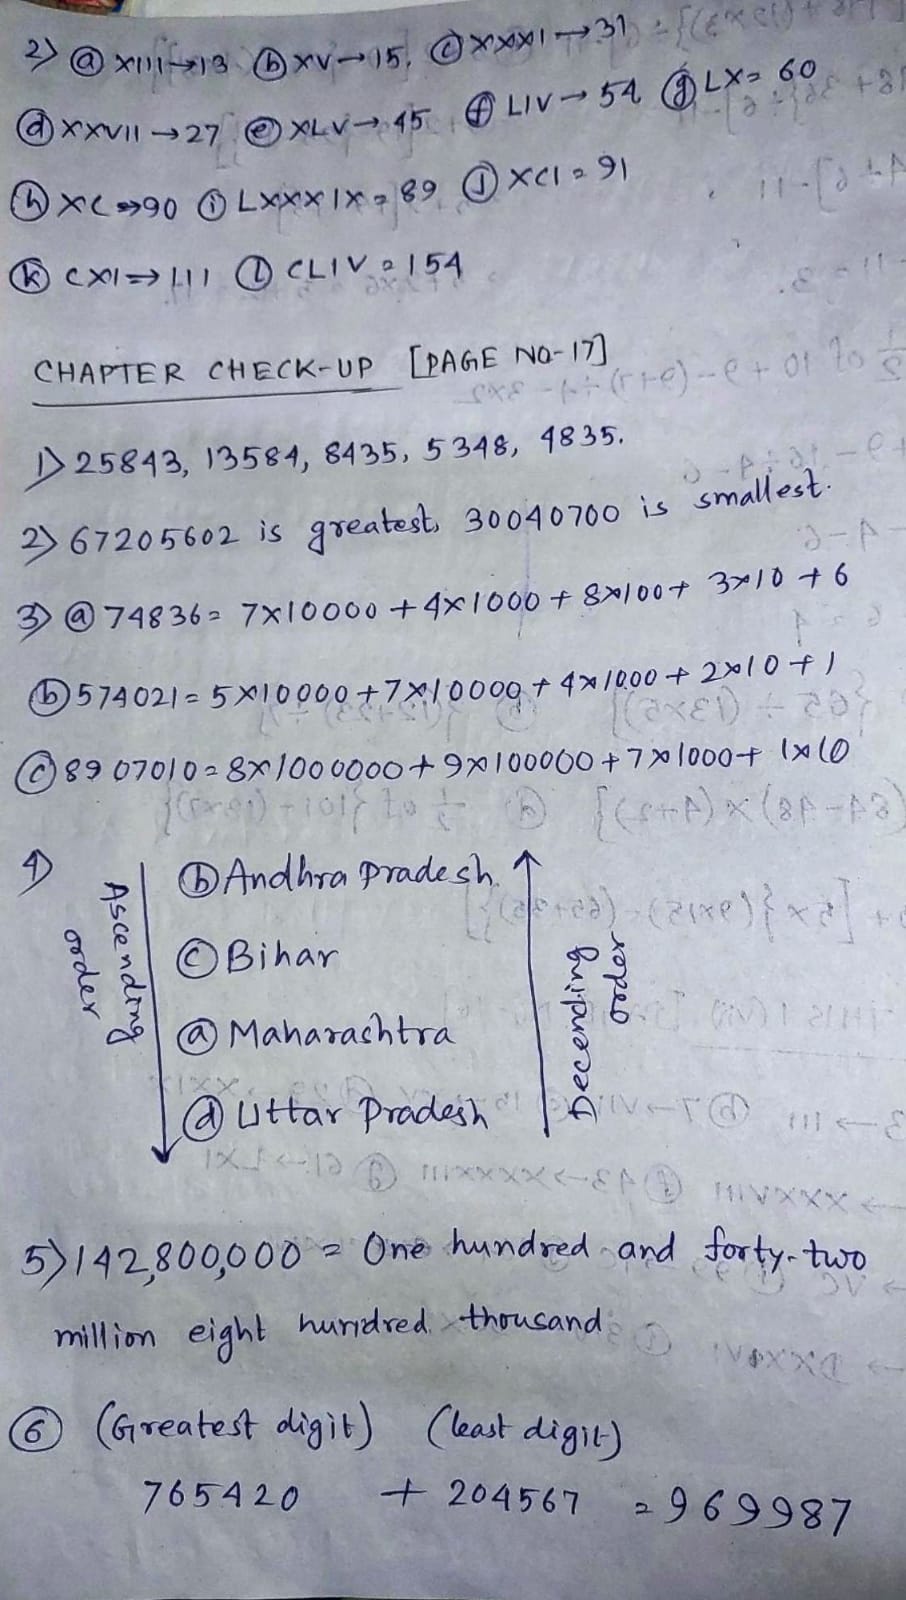 2) ⓐ XIII→13 ⓑ XV→15. ⓒ XXXI→31
ⓓ XXVII→27 ⓔ XLV→45 ⓕ LIV→54 ⓖ LX=60
ⓗ XC⇒90 ⓘ LXXXIX=89 ⓙ XCI=91
ⓚ CXI⇒111 ⓛ CLIV=154
CHAPTER CHECK-UP [PAGE NO-17]
1) 25843, 13584, 8435, 5348, 4835.
2) 67205602 is greatest, 30040700 is smallest.
3) ⓐ 74836= 7×10000+4×1000+8×100+ 3×10+6
ⓑ 574021=5×10000+7×10000+4×1000+2×10+1
ⓒ 8907010=8×1000000+9×100000+7×1000+ 1×10
4) Ascending order
ⓑ Andhra Pradesh
ⓒ Bihar
ⓐ Maharashtra
ⓓ Uttar Pradesh
Decending order
5) 142,800,000 = One hundred and forty-two
million eight hundred thousand
⑥ (Greatest digit) (least digit)
765420 + 204567 =969987